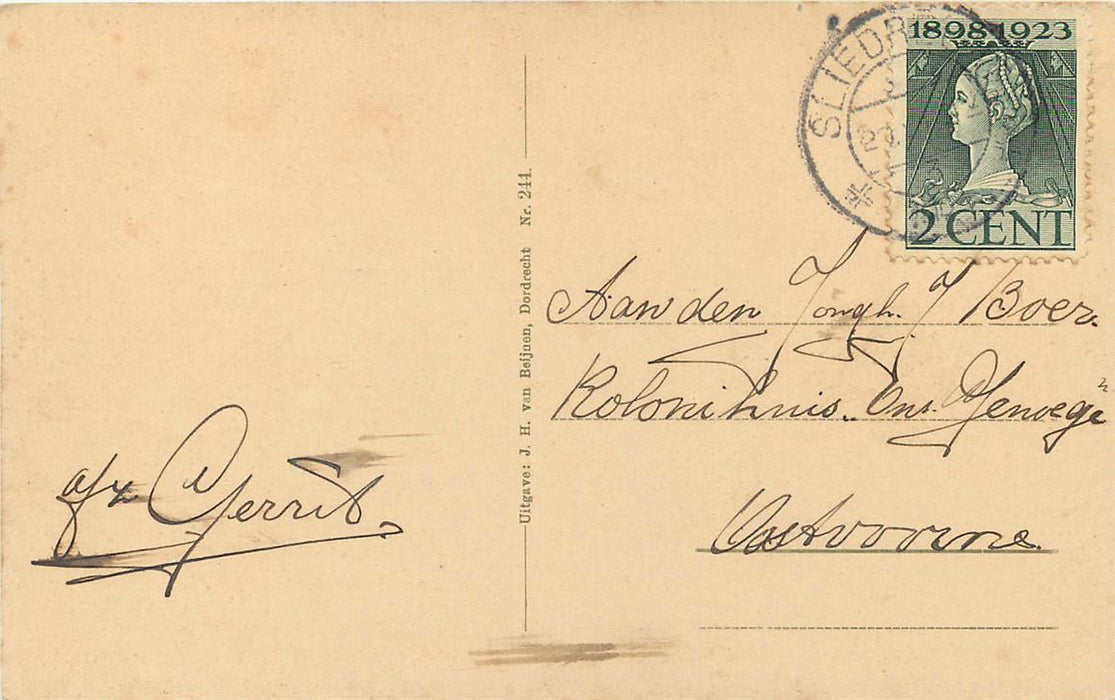 1898-1923
2 CENT
SLIEDR
Aan den Jongh. J Boer.
Kolonihuis. Ons. Genoegen
Oostvoorne
afz Gerrit
Uitgave: J. H. van Beijnen, Dordrecht Nr. 244.